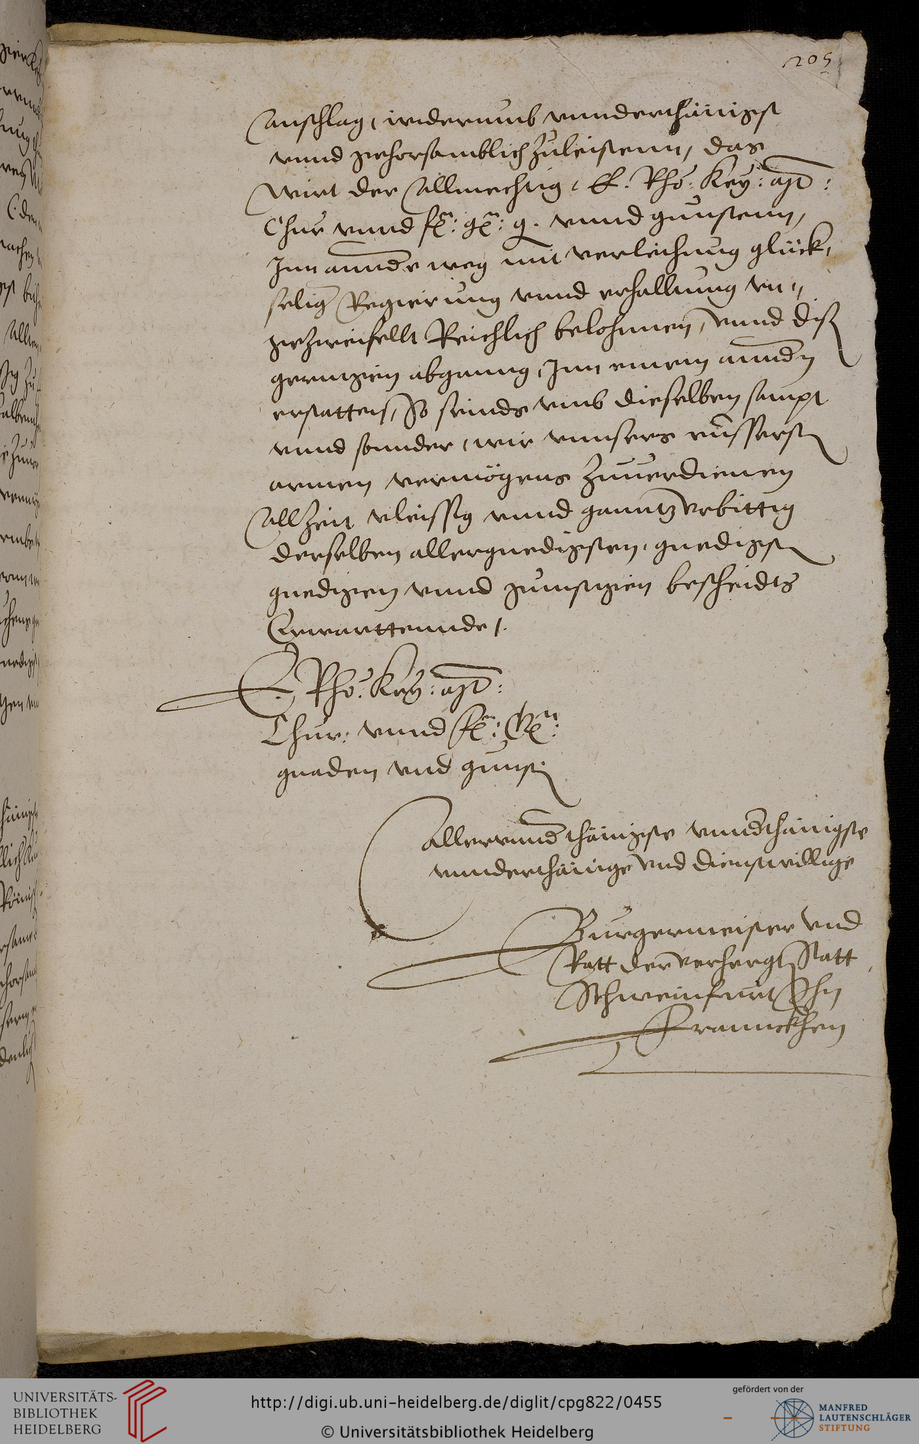 205
Anschlag, widerumb vnnderthänigst
vnnd gehorsamblich zuleistenn, das
Wirt der Allmechtig, E. Rho: Key: Mt:
Chur vnnd f: g: g. vnnd gunstenn,
Inn annder weg mit verleichung glück,
selige Regierung vnnd erhalltung vn,,
gezweifellt Reichlich belohnnen, vnnd diß
geringen abganng, Inn einem anndern
erstatten, So seinds vmb dieselben sampt
vnnd sonnder, wir vnnsers eusserste
armen vermögens zuuerdienen
Allzeit vleissig vnnd ganntz vrbittig
derselben allergnedigsten, gnedigst
gnedigen vnnd gunstigen bescheidts
Erwarttennde.
E. Rho: Key: Mt:
Chur: vnnd f: G:
gnaden vnd gunst
Allervnnderthänigste vnnderthänigste
vnnderthänige vnd dienstwillige
Burgermeister vnd
Ratt der verhergten Statt
Schweinfurt Ihn
Franncken
UNIVERSITÄTS-
BIBLIOTHEK
HEIDELBERG
http://digi.ub.uni-heidelberg.de/diglit/cpg822/0455
© Universitätsbibliothek Heidelberg
gefördert von der
MANFRED
LAUTENSCHLÄGER
STIFTUNG